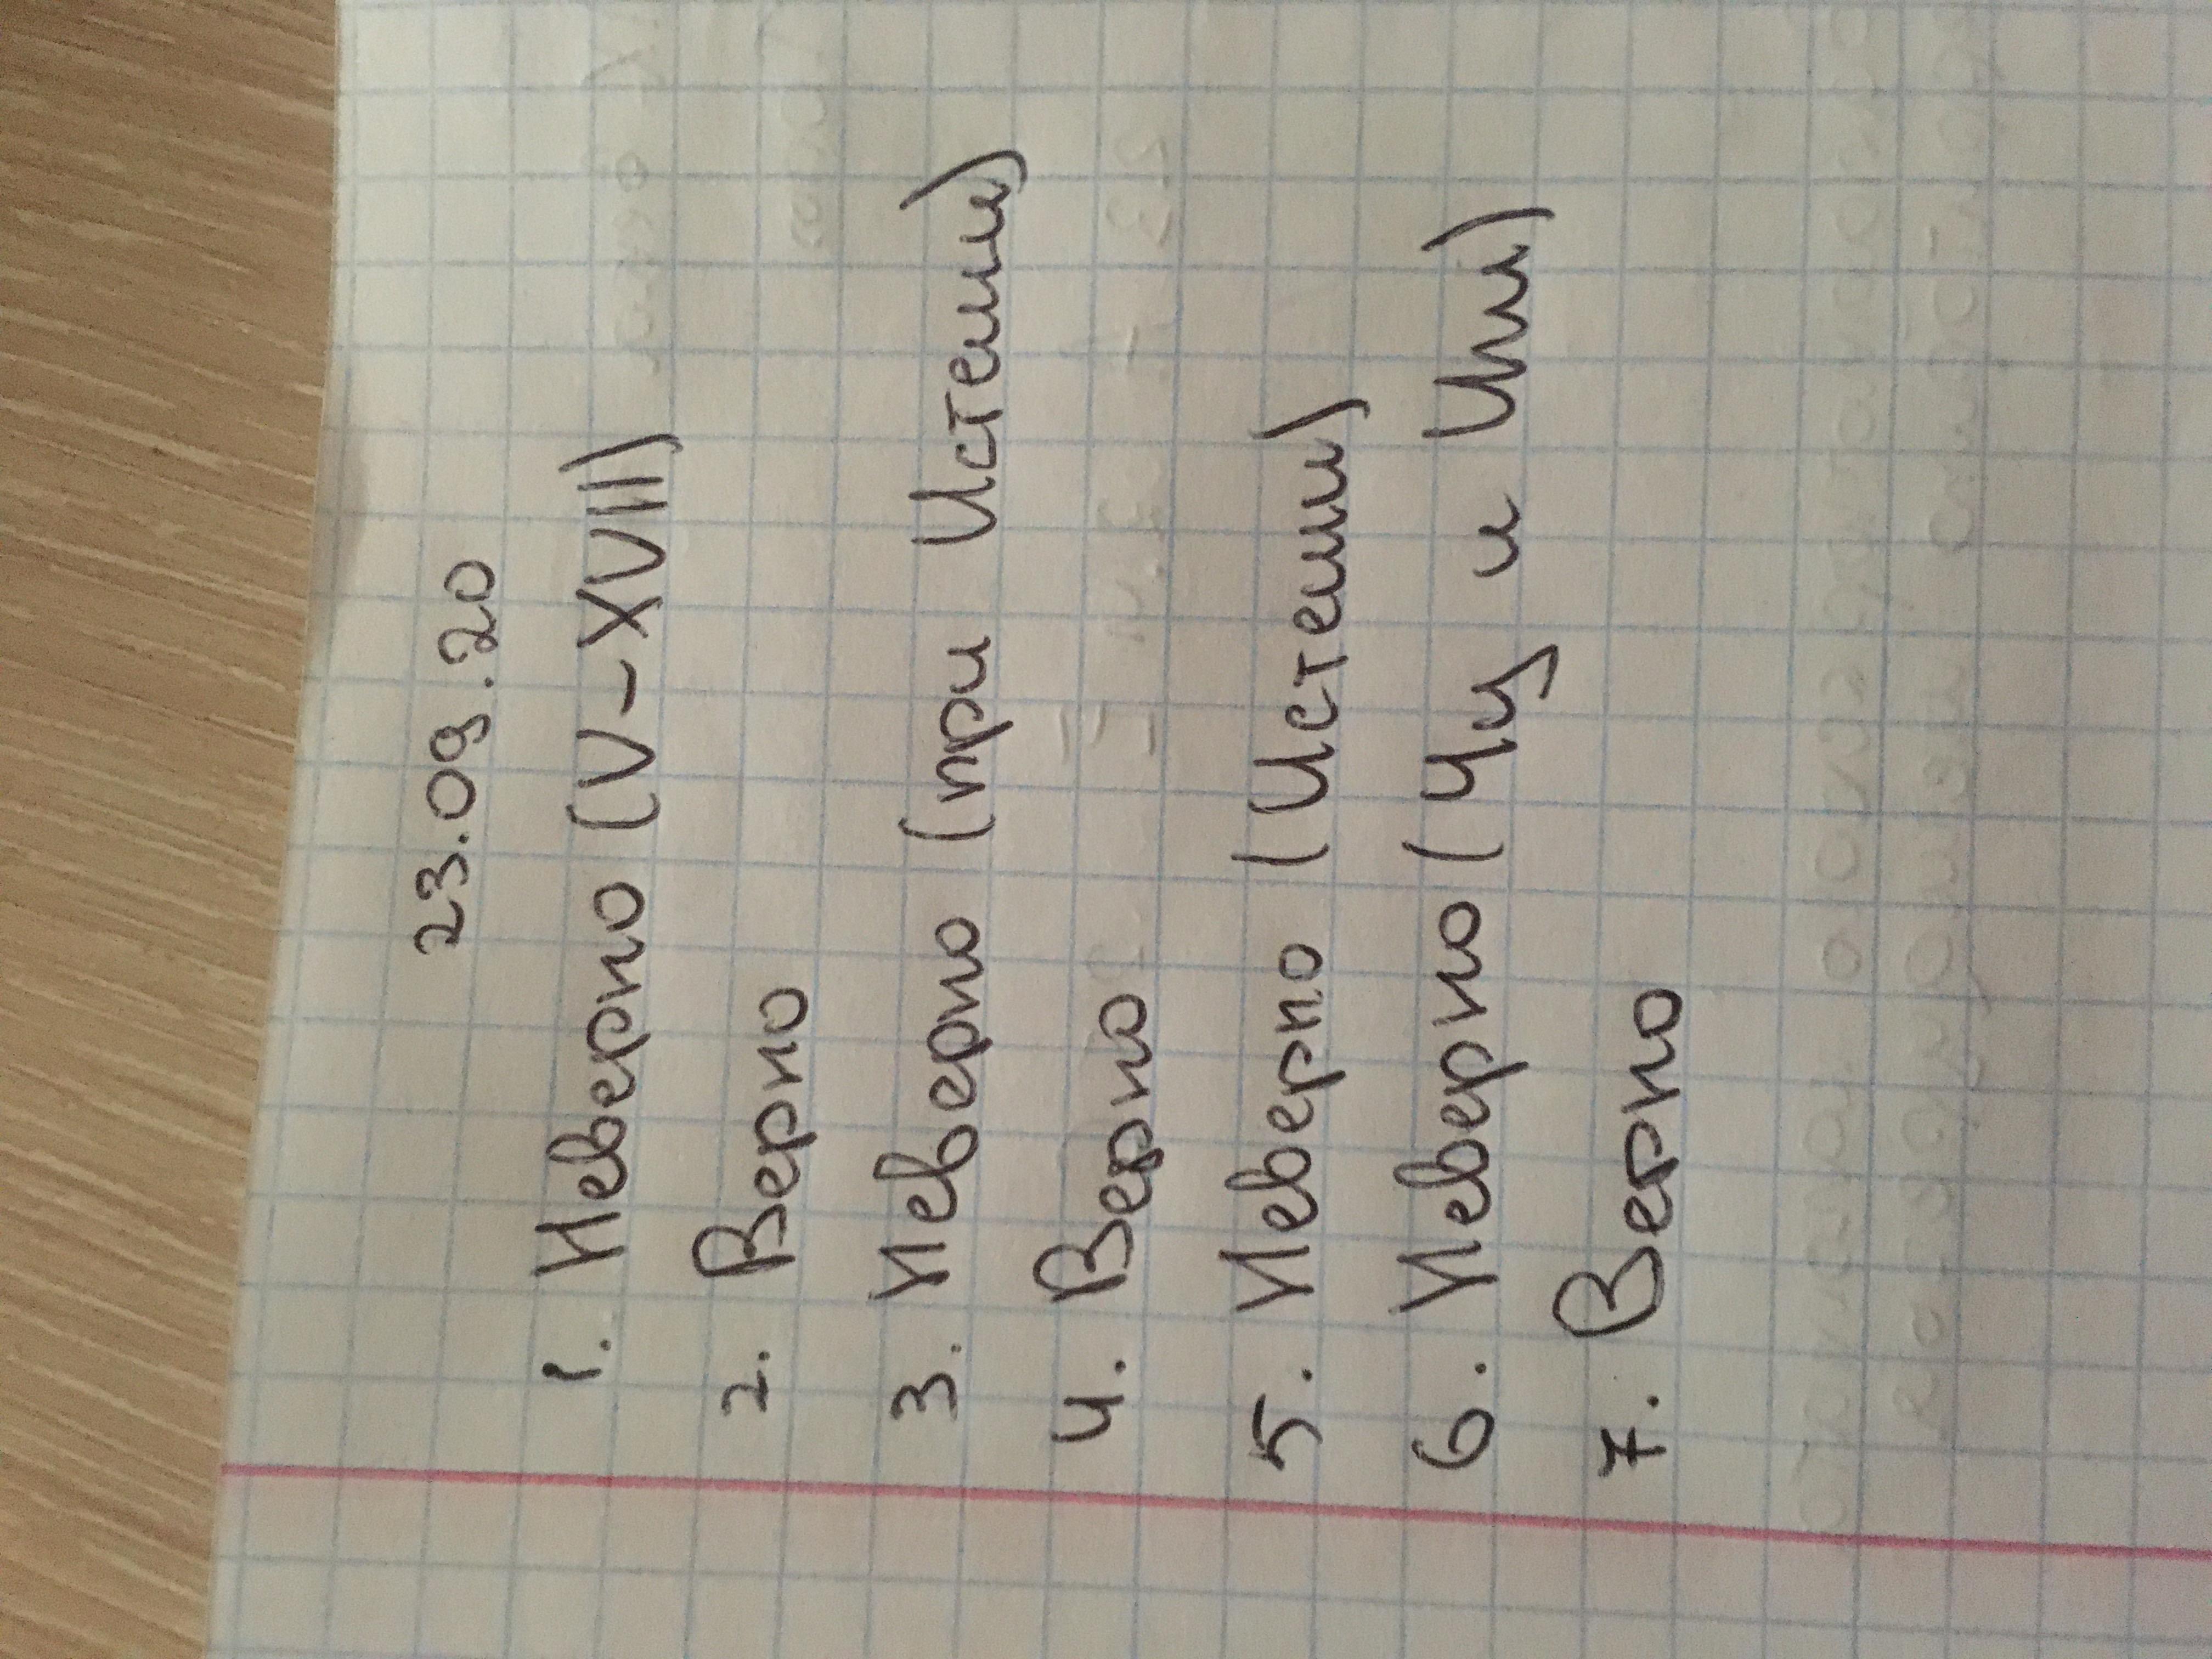 23.09.20
1. Неверно (V-XVII)
2. Верно
3. Неверно (при Истеми)
4. Верно
5. Неверно (Истеми)
6. Неверно (Чу и Или)
7. Верно